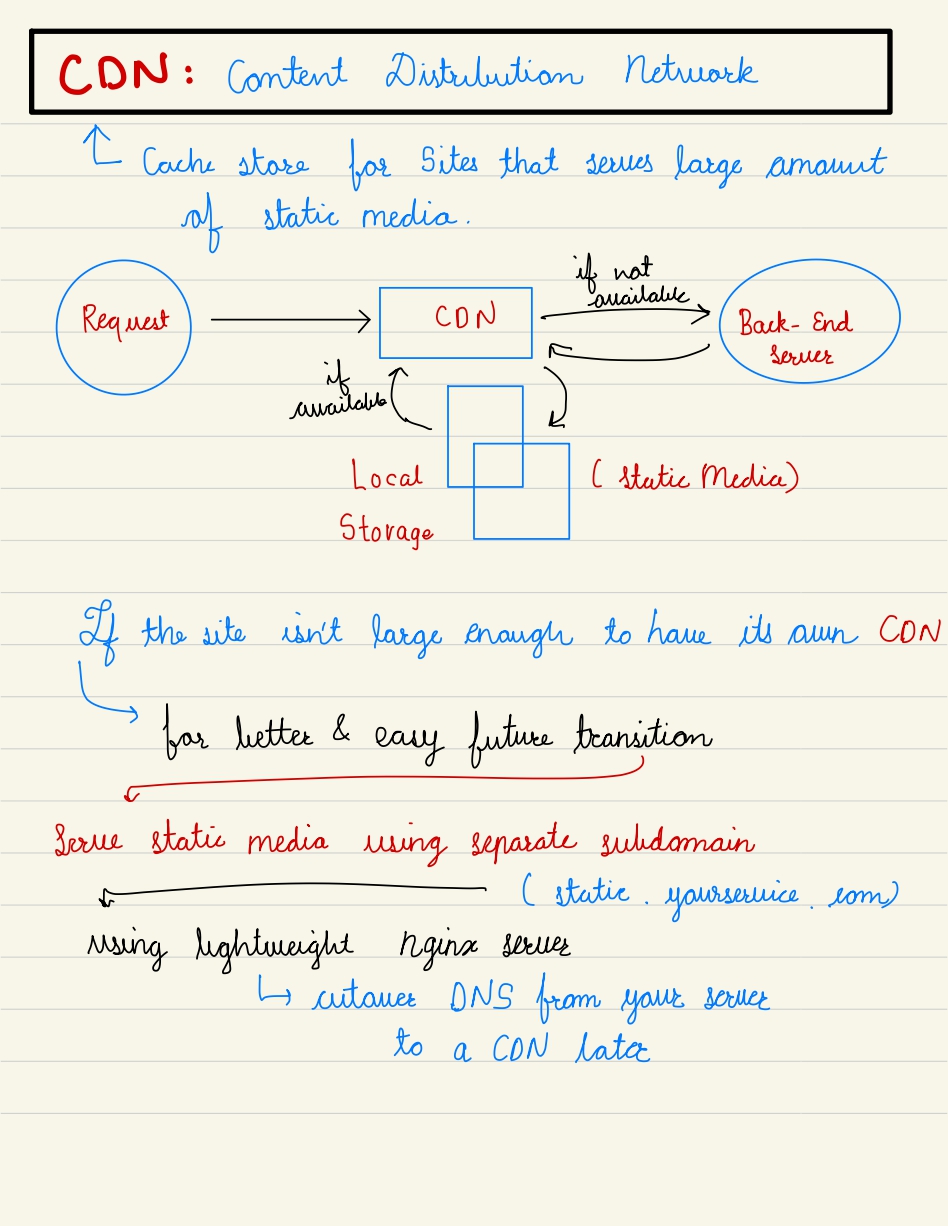 CDN: Content Distribution Network
Cache store for Sites that serves large amount
of static media.
if not
available
Request
CDN
Back-End
Server
if
available
Local
Storage
(Static Media)
If the site isn't large enough to have its own CDN
for better & easy future transition
Serve static media using separate subdomain
(static.yourservice.com)
using lightweight nginx server
cutover DNS from your server
to a CDN later